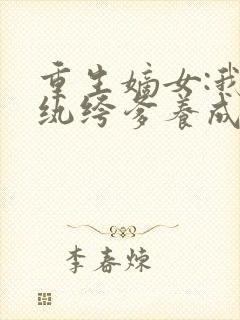 重生嫡女:我
纨绔爹养成
李春炼